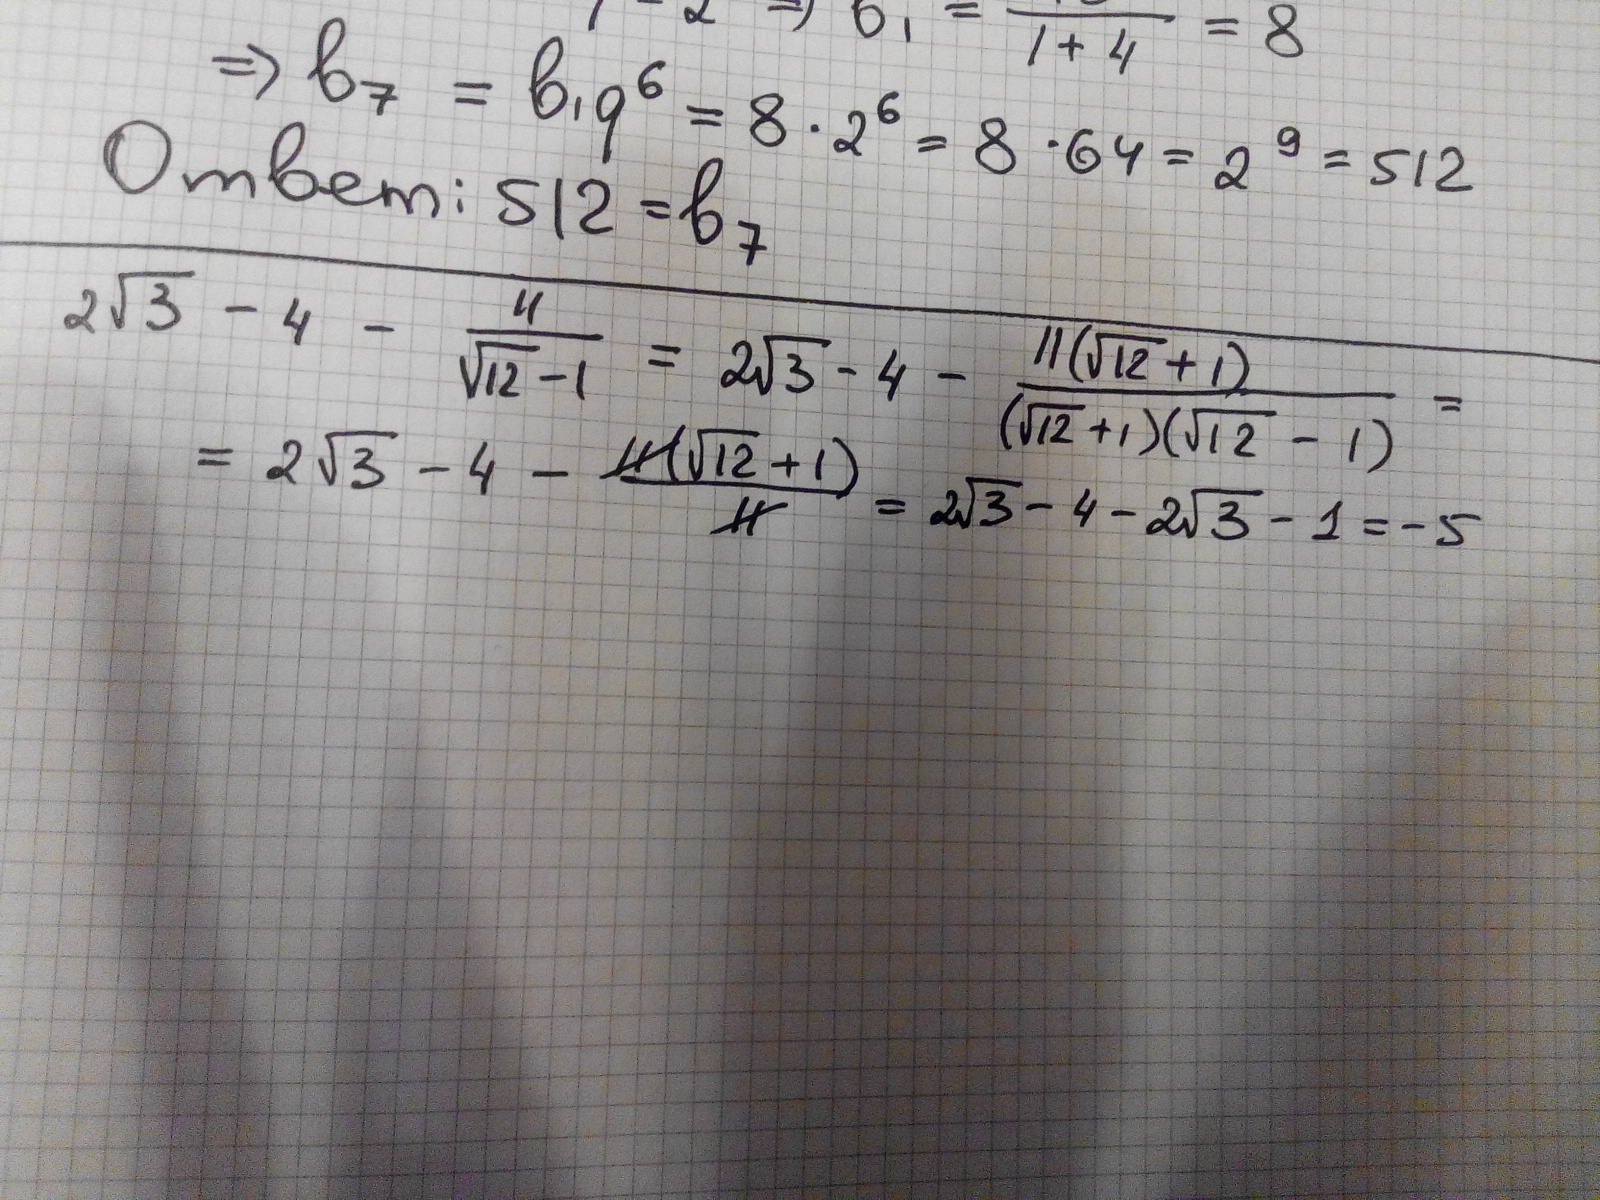 ⇒ b₁ = —/(1 + 4) = 8
⇒ b₇ = b₁q⁶ = 8 · 2⁶ = 8 · 64 = 2⁹ = 512
Ответ: 512 = b₇
2√3 - 4 - 11/(√12 - 1) = 2√3 - 4 - 11(√12 + 1)/((√12 + 1)(√12 - 1)) =
= 2√3 - 4 - 11(√12 + 1)/11 = 2√3 - 4 - 2√3 - 1 = -5